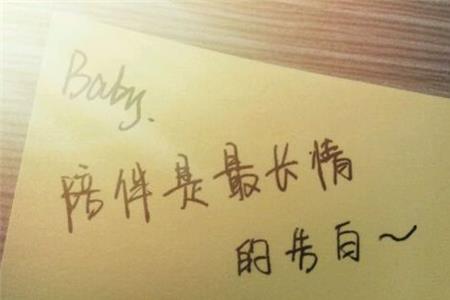 Baby.
陪伴是最长情
的告白~